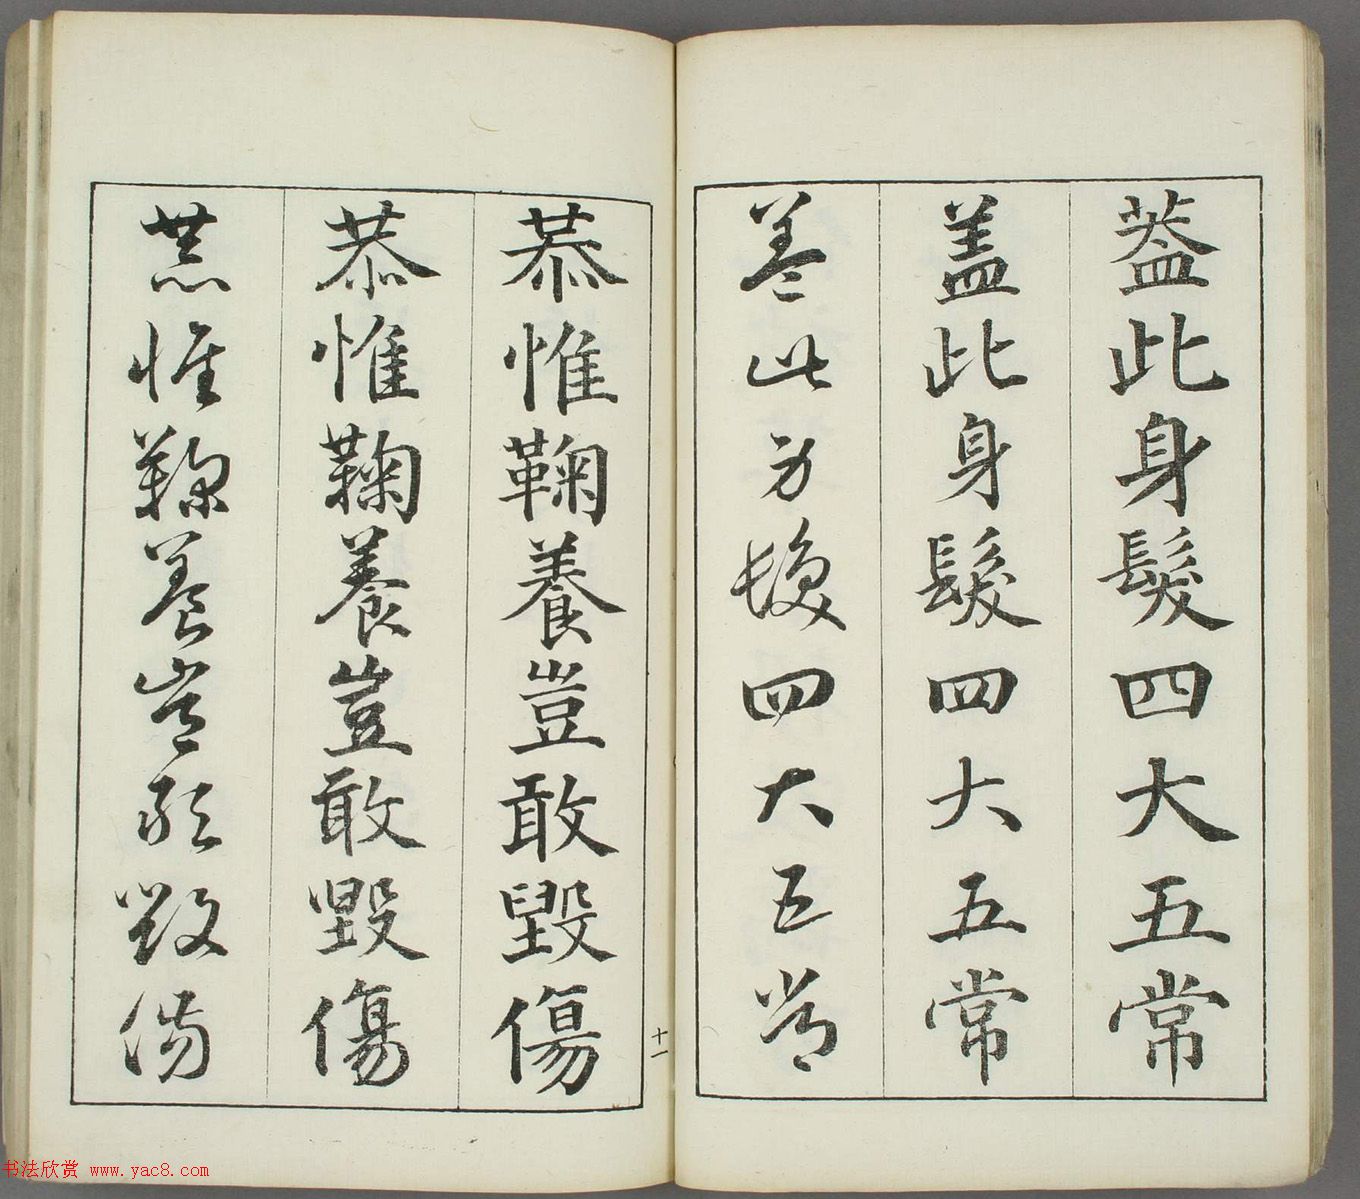 蓋此身髮四大五常
盖此身髮四大五常
盖此身髮四大五常
恭惟鞠養豈敢毀傷
恭惟鞠養豈敢毀傷
恭惟鞠養豈敢毀傷
十一
书法欣赏 www.yac8.com